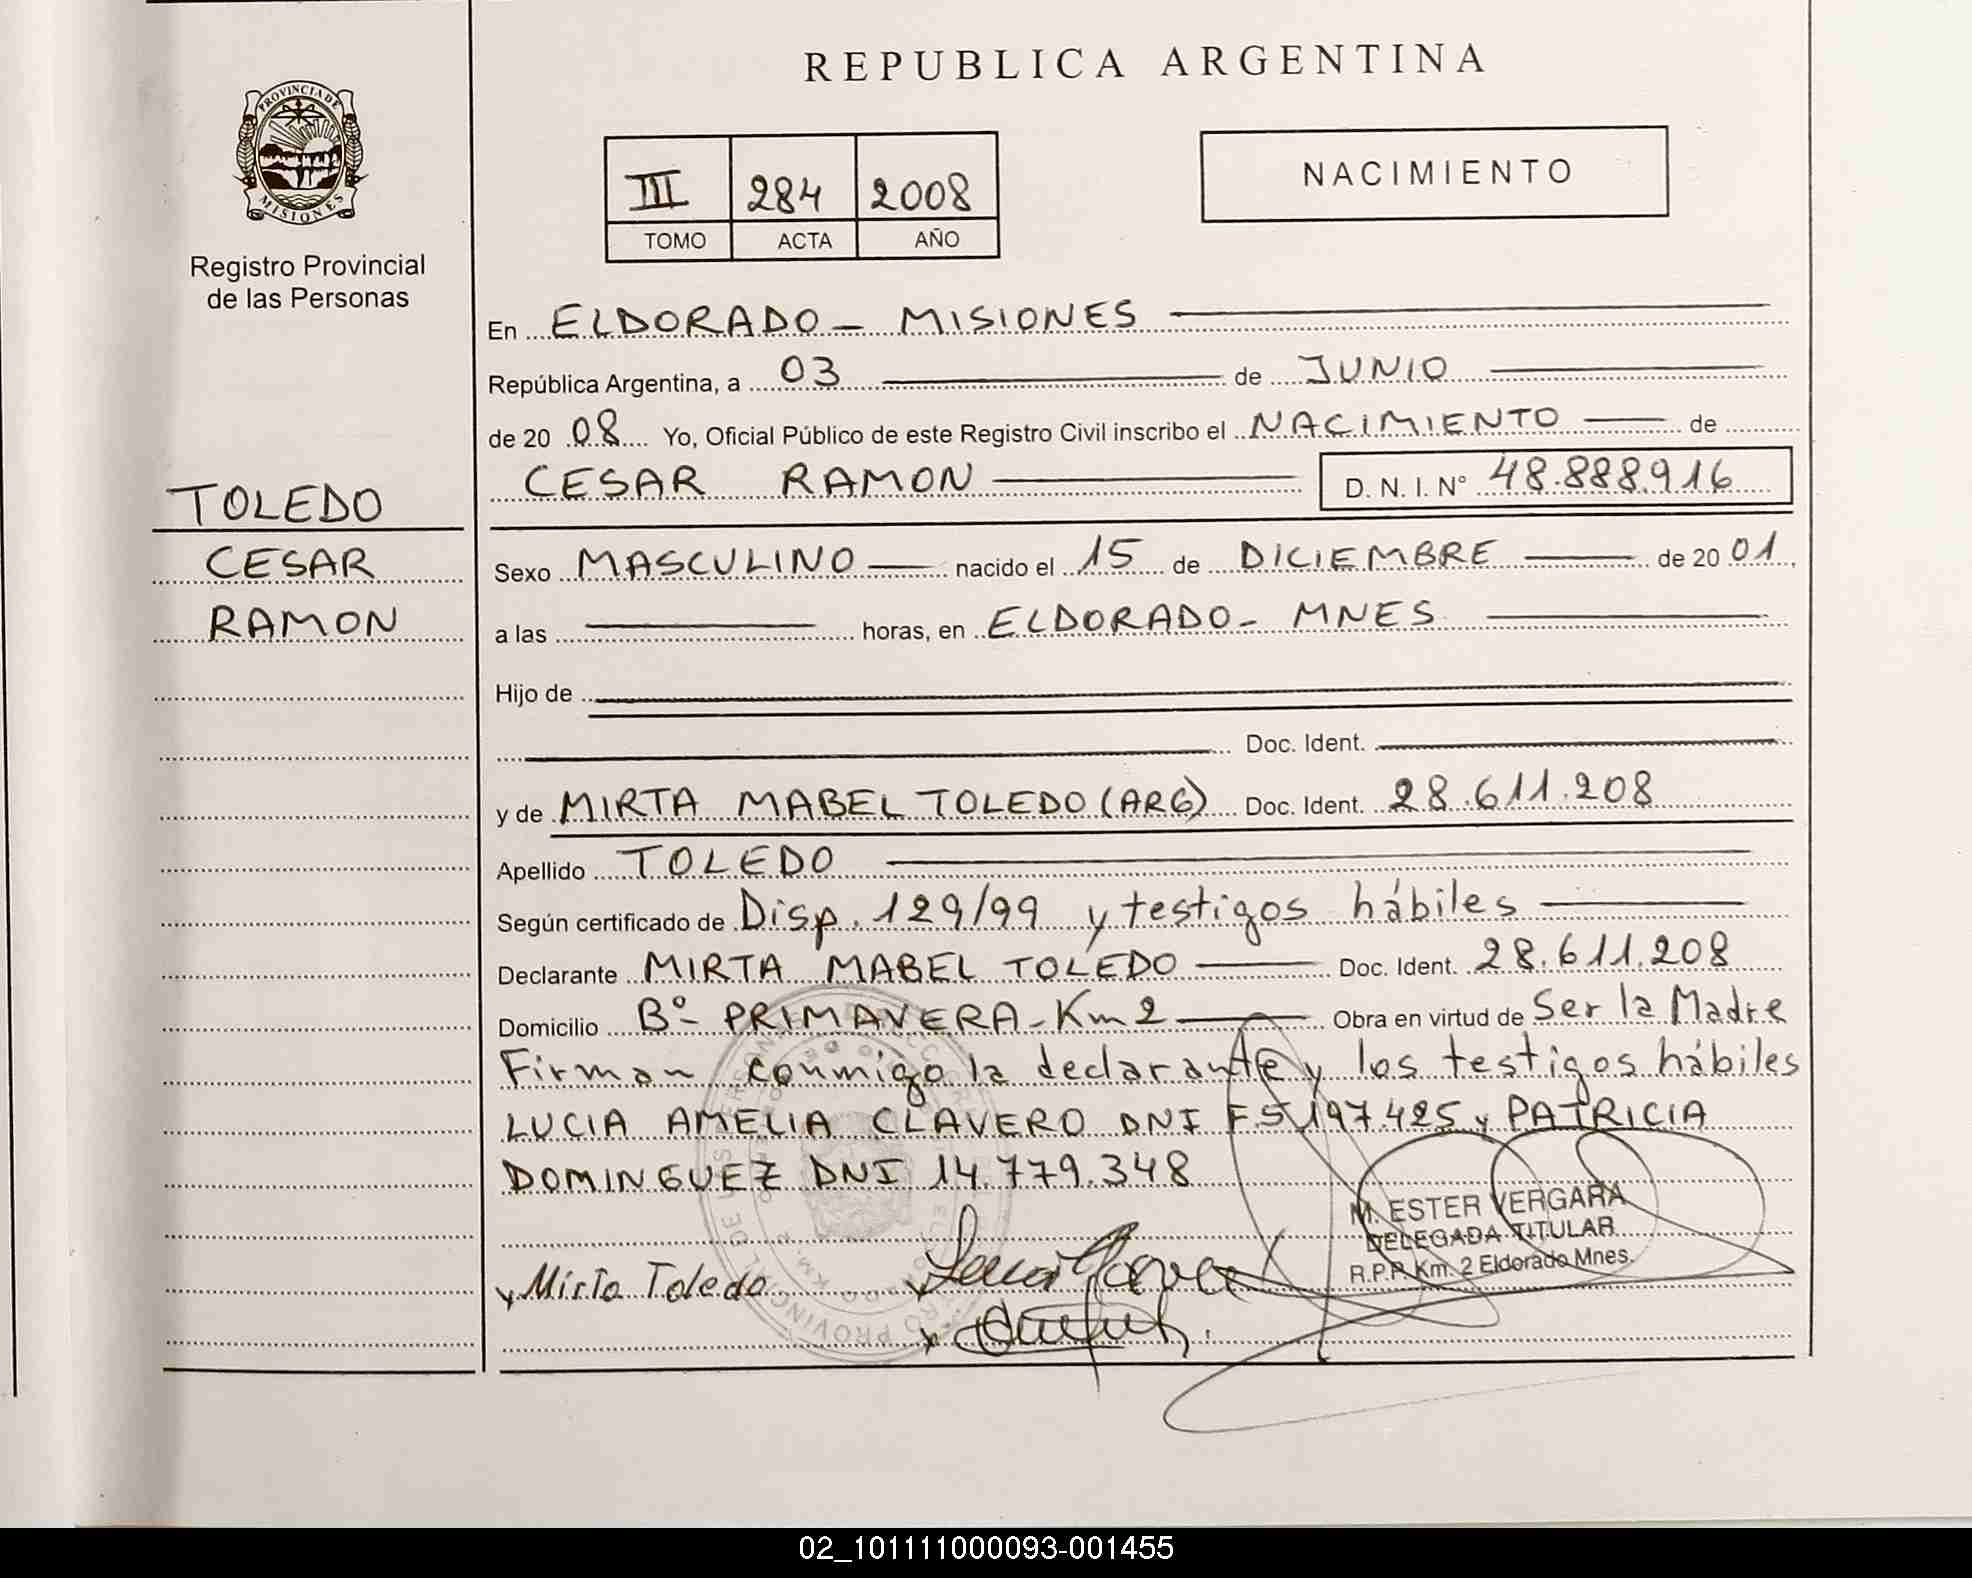 REPUBLICA ARGENTINA
PROVINCIA DE
MISIONES
Registro Provincial
de las Personas
III 284 2008
TOMO ACTA AÑO
NACIMIENTO
TOLEDO
CESAR
RAMON
En ELDORADO - MISIONES
República Argentina, a 03 de JUNIO
de 20 08 Yo, Oficial Público de este Registro Civil inscribo el NACIMIENTO de
CESAR RAMON D. N. I. N° 48.888.916
Sexo MASCULINO nacido el 15 de DICIEMBRE de 20 01
a las horas, en ELDORADO - MNES
Hijo de
Doc. Ident.
y de MIRTA MABEL TOLEDO (ARG) Doc. Ident. 28.611.208
Apellido TOLEDO
Según certificado de Disp. 129/99 y testigos hábiles
Declarante MIRTA MABEL TOLEDO Doc. Ident. 28.611.208
Domicilio Bº - PRIMAVERA - Km 2 Obra en virtud de Ser la Madre
Firman conmigo la declarante y los testigos hábiles
LUCIA AMELIA CLAVERO DNI F5.197.425 y PATRICIA
DOMINGUEZ DNI 14.779.348
M. ESTER VERGARA
DELEGADA TITULAR
R.P.P. Km. 2 Eldorado Mnes.
x Mirta Toledo
02_101111000093-001455